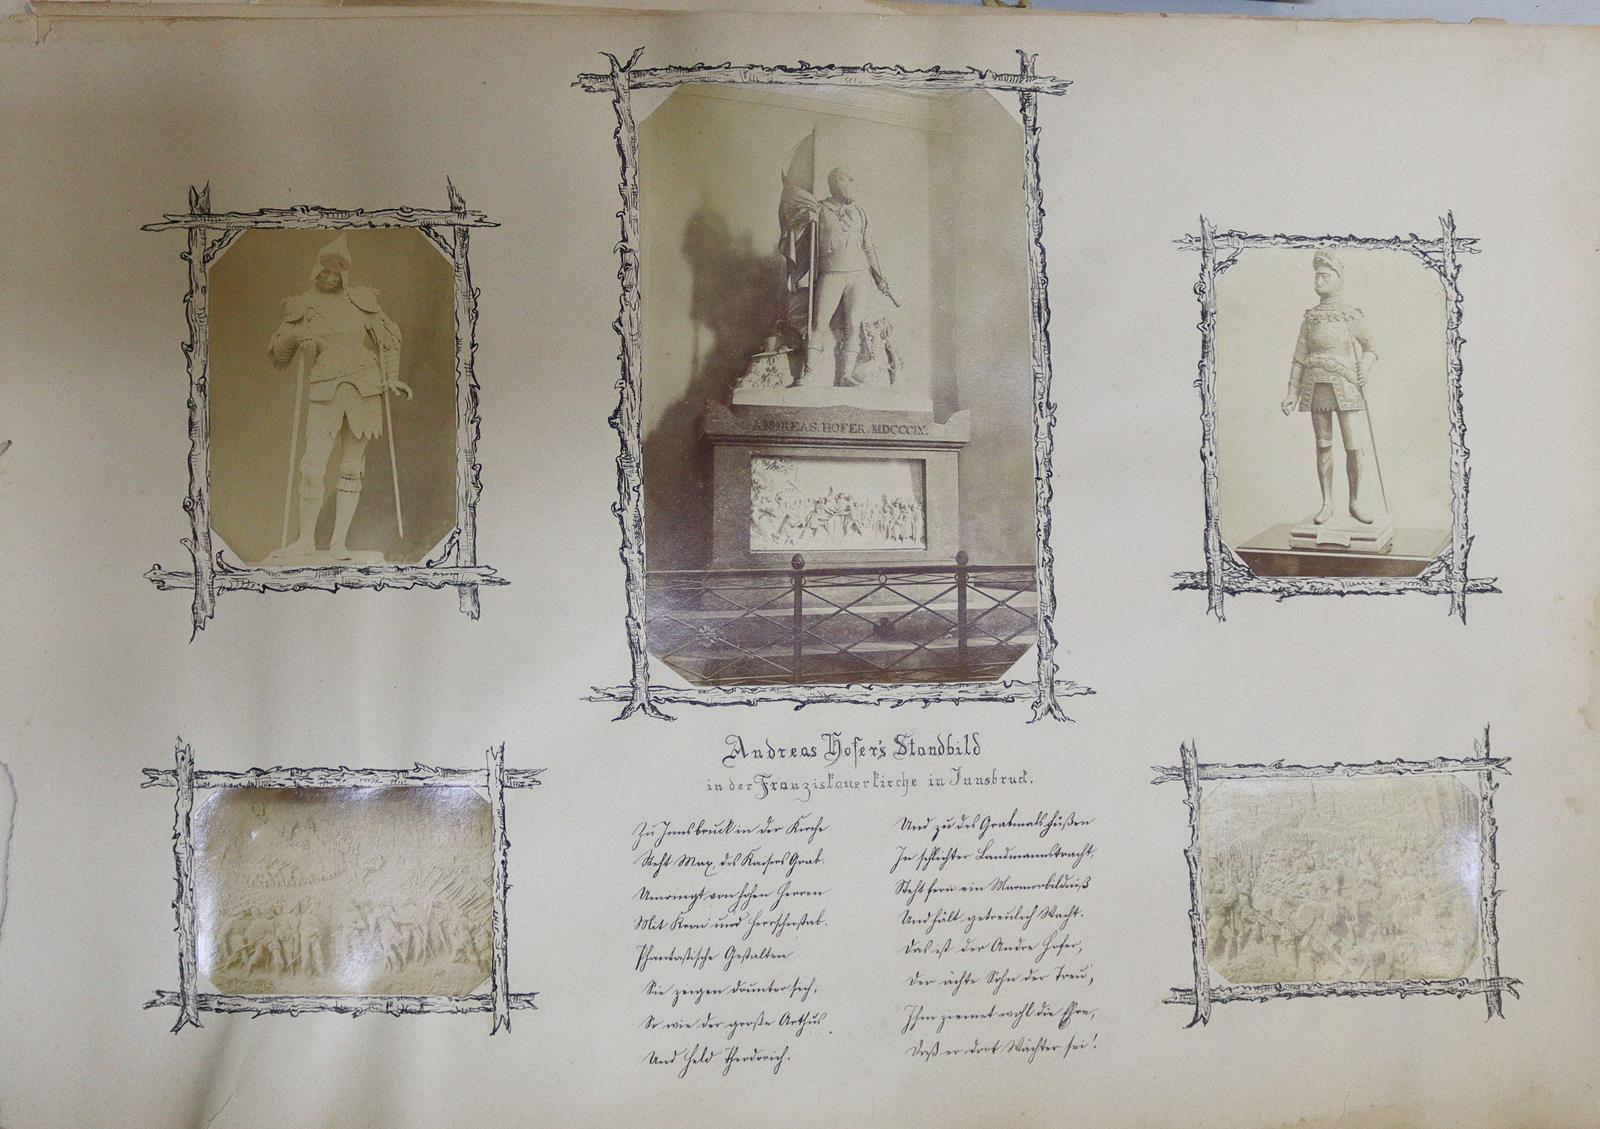 ANDREAS. HOFER. MDCCCIX.
Andreas Hofer's Standbild
in der Franziskanerkirche in Innsbruck.
Zu Innsbruck in der Kirche
Steht Max, des Kaisers Grab.
Umringt von hohen Herren
Mit Kron' und Herrscherstab.
Phantastische Gestalten
Sie zeigen drunter sich,
So wie der große Arthus
Und Held Theodorich.
Und zu des Grabmals Füßen
In schlichter Landmannstracht,
Steht fern ein Marmorbildniß
Und hält getreulich Wacht.
Das ist der Andre Hofer,
Der ächte Sohn der Treu',
Ihm ziemet wohl die Ehre,
Daß er dort Wächter sei!